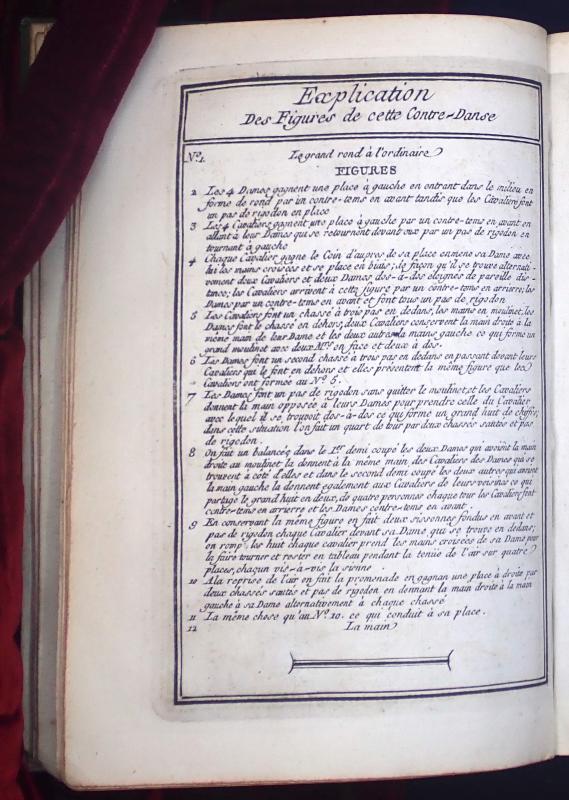 Explication
Des Figures de cette Contre-Danse
No. 1. Le grand rond à l'ordinaire
FIGURES
2 Les 4 Dames gagnent une place à gauche en entrant dans le milieu en
forme de rond par un contre-tems en avant tandis que les Cavaliers font
un pas de rigodon en place
3 Les 4 Cavaliers gagnent une place à gauche par un contre-tems en avant en
allant à leur Dames qui se retournent devant eux par un pas de rigodon en
tournant à gauche
4 Chaque Cavalier gagne le Coin d'aupres de sa place enmene sa Dame avec
lui les mains croisées et se place en biais; de façon qu'il se trouve alternati-
vement deux Cavaliers et deux Dames dos-à-dos eloignés de pareille dis-
tance; les Cavaliers arrivent à cette figure par un contre-tems en arriere; les
Dames par un contre-tems en avant et font tous un pas de rigodon
5 Les Cavaliers font un chassé à trois pas en dedans, les mains en moulinet, les
Dames font le chassé en dehors; deux Cavaliers conservent la main droite à la
même main de leur Dame et les deux autres la mains gauche ce qui forme un
grand moulinet avec deux Mrs en face et deux à dos.
6 Les Dames font un second chassé à trois pas en dedans en passant devant leurs
Cavaliers qui le font en dehors et elles présentent la même figure que les
Cavaliers ont formée au No. 5.
7 Les Dames font un pas de rigodon sans quitter le moulinet, et les Cavaliers
donnent la main opposée à leurs Dames pour prendre celle du Cavalier
avec lequel il se trouvoit dos-à-dos ce qui forme un grand huit de chifre;
dans cette situation l'on fait un quart de tour par deux chassés sautés et pas
de rigodon.
8 On fait un balancés dans le 1er demi coupé les deux Dames qui avoient la main
droite au moulinet la donnent à la même main des Cavaliers des Dames qui se
trouvent à coté d'elles et dans le second demi coupé les deux autres qui avoient
la main gauche la donnent egalement aux Cavaliers de leurs voisines ce qui
partage le grand huit en deux, de quatre personnes chaque tous les Cavaliers font
contre-tems en arrierre et les Dames contre-tems en avant.
9 En conservant la même figure on fait deux sissonnes fondus en avant et
pas de rigodon chaque Cavalier devant sa Dame qui se trouve en dedans;
on romp les huit chaque cavalier prend les mains croisées de sa Dame pour
la faire tourner et rester en tableau pendant la tenüe de l'air sur quatre
places, chaqun vis-à-vis la sienne
10 A la reprise de l'air on fait la promenade en gagnan une place à droite par
deux chassés sautés et pas de rigodon en donnant la main droite à la main
gauche à sa Dame alternativement à chaque chassé
11 La même chose qu'au No. 10. ce qui conduit à sa place.
12 La main